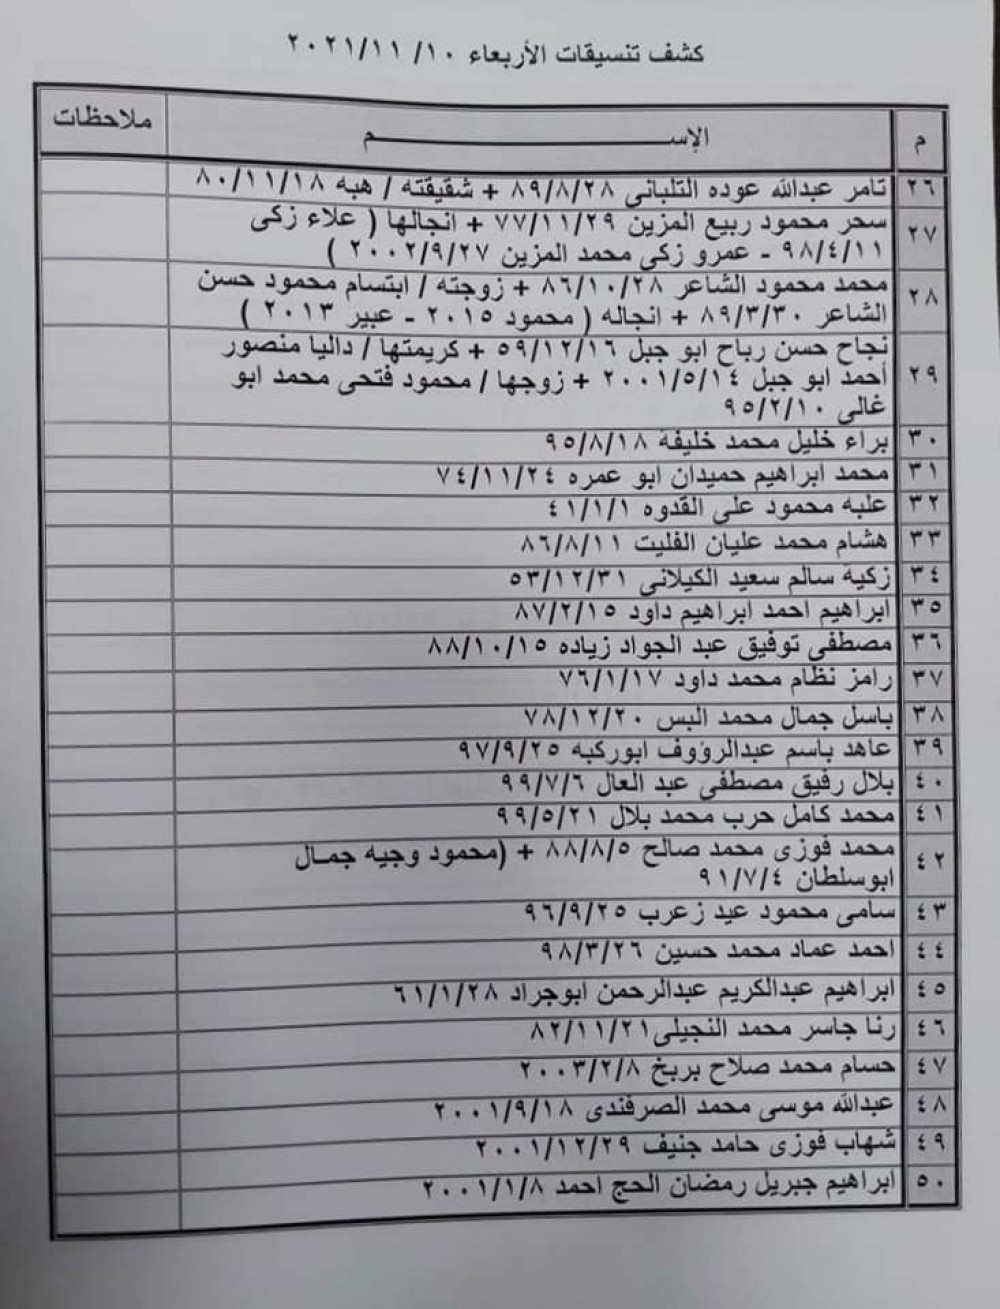 كشف تنسيقات الأربعاء ١٠/ ٢٠٢١/١١
م الإســـــــــــم ملاحظات
٢٦ تامر عبدالله عوده التلبانى ٨٩/٨/٢٨ + شقيقته / هبه ٨٠/١١/١٨
٢٧ سحر محمود ربيع المزين ٧٧/١١/٢٩ + انجالها ( علاء زكى
٩٨/٤/١١ - عمرو زكى محمد المزين ٢٠٠٢/٩/٢٧ )
٢٨ محمد محمود الشاعر ٨٦/١٠/٢٨ + زوجته / ابتسام محمود حسن
الشاعر ٨٩/٣/٣٠ + انجاله ( محمود ٢٠١٥ - عبير ٢٠١٣ )
٢٩ نجاح حسن رباح ابو جبل ٥٩/١٢/١٦ + كريمتها / داليا منصور
أحمد ابو جبل ٢٠٠١/٥/١٤ + زوجها / محمود فتحى محمد ابو
غالى ٩٥/٢/١٠
٣٠ براء خليل محمد خليفة ٩٥/٨/١٨
٣١ محمد ابراهيم حميدان ابو عمره ٧٤/١١/٢٤
٣٢ علبه محمود على القدوه ٤١/١/١
٣٣ هشام محمد عليان الفليت ٨٦/٨/١١
٣٤ زكية سالم سعيد الكيلانى ٥٣/١٢/٣١
٣٥ ابراهيم احمد ابراهيم داود ٨٧/٢/١٥
٣٦ مصطفى توفيق عبد الجواد زياده ٨٨/١٠/١٥
٣٧ رامز نظام محمد داود ٧٦/١/١٧
٣٨ باسل جمال محمد البس ٧٨/١٢/٢٠
٣٩ عاهد باسم عبدالرؤوف ابوركبه ٩٧/٩/٢٥
٤٠ بلال رفيق مصطفى عبد العال ٩٩/٧/٦
٤١ محمد كامل حرب محمد بلال ٩٩/٥/٢١
٤٢ محمد فوزى محمد صالح ٨٨/٨/٥ + (محمود وجيه جمال
ابوسلطان ٩١/٧/٤
٤٣ سامى محمود عيد زعرب ٩٦/٩/٢٥
٤٤ احمد عماد محمد حسين ٩٨/٣/٢٦
٤٥ ابراهيم عبدالكريم عبدالرحمن ابوجراد ٦١/١/٢٨
٤٦ رنا جاسر محمد النجيلى٨٢/١١/٢١
٤٧ حسام محمد صلاح بربخ ٢٠٠٣/٢/٨
٤٨ عبدالله موسى محمد الصرفندى ٢٠٠١/٩/١٨
٤٩ شهاب فوزى حامد جنيف ٢٠٠١/١٢/٢٩
٥٠ ابراهيم جبريل رمضان الحج احمد ٢٠٠١/١/٨